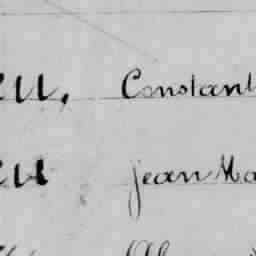 eu, Constant
eu Jean Ma